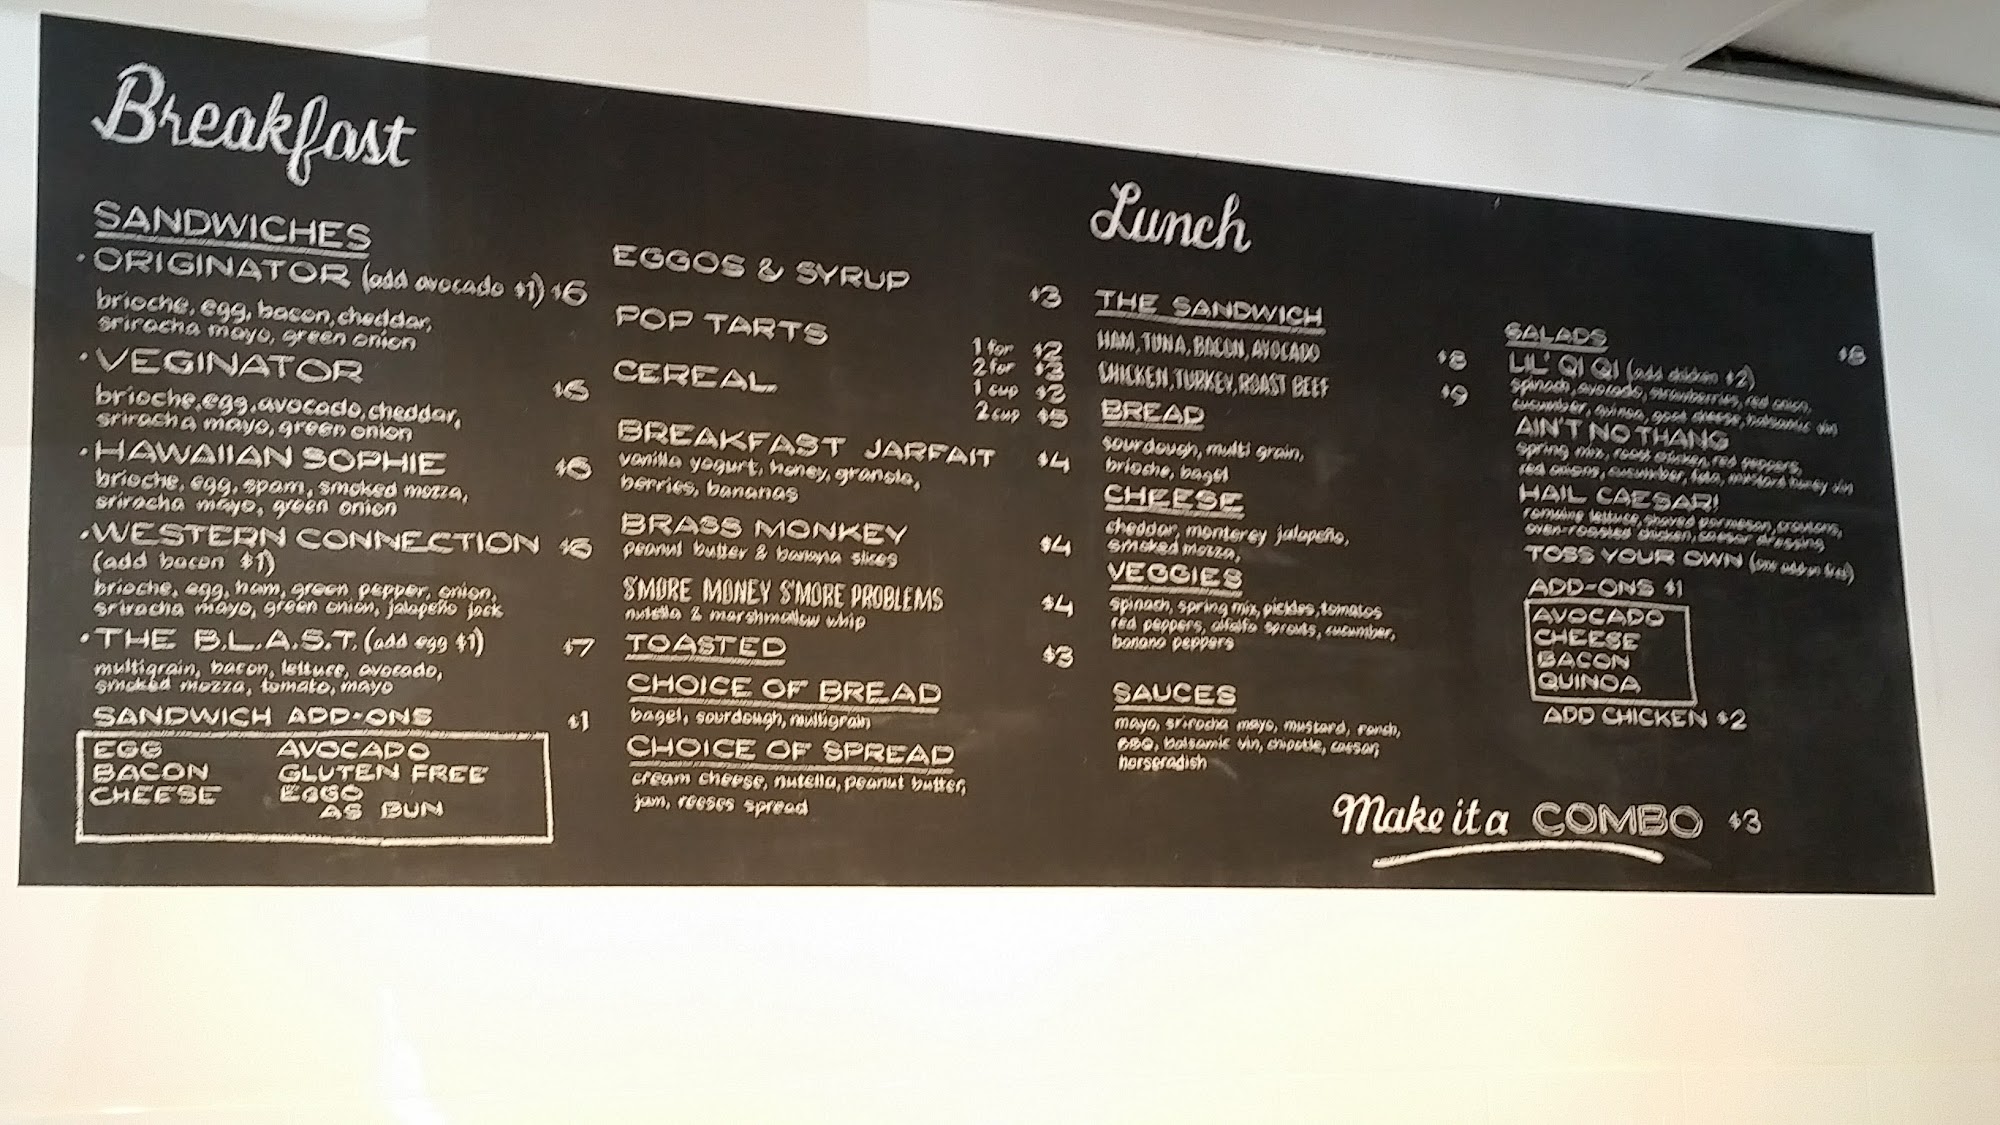 Breakfast
SANDWICHES
• ORIGINATOR (add avocado $1) $6
brioche, egg, bacon, cheddar,
sriracha mayo, green onion
• VEGINATOR $6
brioche, egg, avocado, cheddar,
sriracha mayo, green onion
• HAWAIIAN SOPHIE $6
brioche, egg, spam, smoked mozza,
sriracha mayo, green onion
• WESTERN CONNECTION $6
(add bacon $1)
brioche, egg, ham, green pepper, onion,
sriracha mayo, green onion, jalapeño jack
• THE B.L.A.S.T. (add egg $1) $7
multigrain, bacon, lettuce, avocado,
smoked mozza, tomato, mayo
SANDWICH ADD-ONS $1
EGG AVOCADO
BACON GLUTEN FREE
CHEESE EGGO
AS BUN
EGGOS & SYRUP $3
POP TARTS 1 for $2
2 for $3
CEREAL 1 cup $3
2 cup $5
BREAKFAST JARFAIT $4
vanilla yogurt, honey, granola,
berries, bananas
BRASS MONKEY $4
peanut butter & banana slices
S'MORE MONEY S'MORE PROBLEMS $4
nutella & marshmallow whip
TOASTED $3
CHOICE OF BREAD
bagel, sourdough, multigrain
CHOICE OF SPREAD
cream cheese, nutella, peanut butter,
jam, reeses spread
Lunch
THE SANDWICH
HAM, TUNA, BACON, AVOCADO $8
CHICKEN, TURKEY, ROAST BEEF $9
BREAD
sourdough, multi grain,
brioche, bagel
CHEESE
cheddar, monterey jalapeño,
smoked mozza,
VEGGIES
spinach, spring mix, pickles, tomatos
red peppers, alfalfa sprouts, cucumber,
banana peppers
SAUCES
mayo, sriracha mayo, mustard, ranch,
BBQ, balsamic vin, chipotle, caesar,
horseradish
SALADS $8
LIL' QI QI (add chicken $2)
spinach, avocado, strawberries, red onion,
cucumber, quinoa, goat cheese, balsamic vin
AIN'T NO THANG
spring mix, roast chicken, red peppers,
red onions, cucumber, feta, mustard honey vin
HAIL CAESAR!
romaine lettuce, shaved parmesan, croutons,
oven-roasted chicken, caesar dressing
TOSS YOUR OWN
ADD-ONS $1
AVOCADO
CHEESE
BACON
QUINOA
ADD CHICKEN $2
Make it a COMBO $3